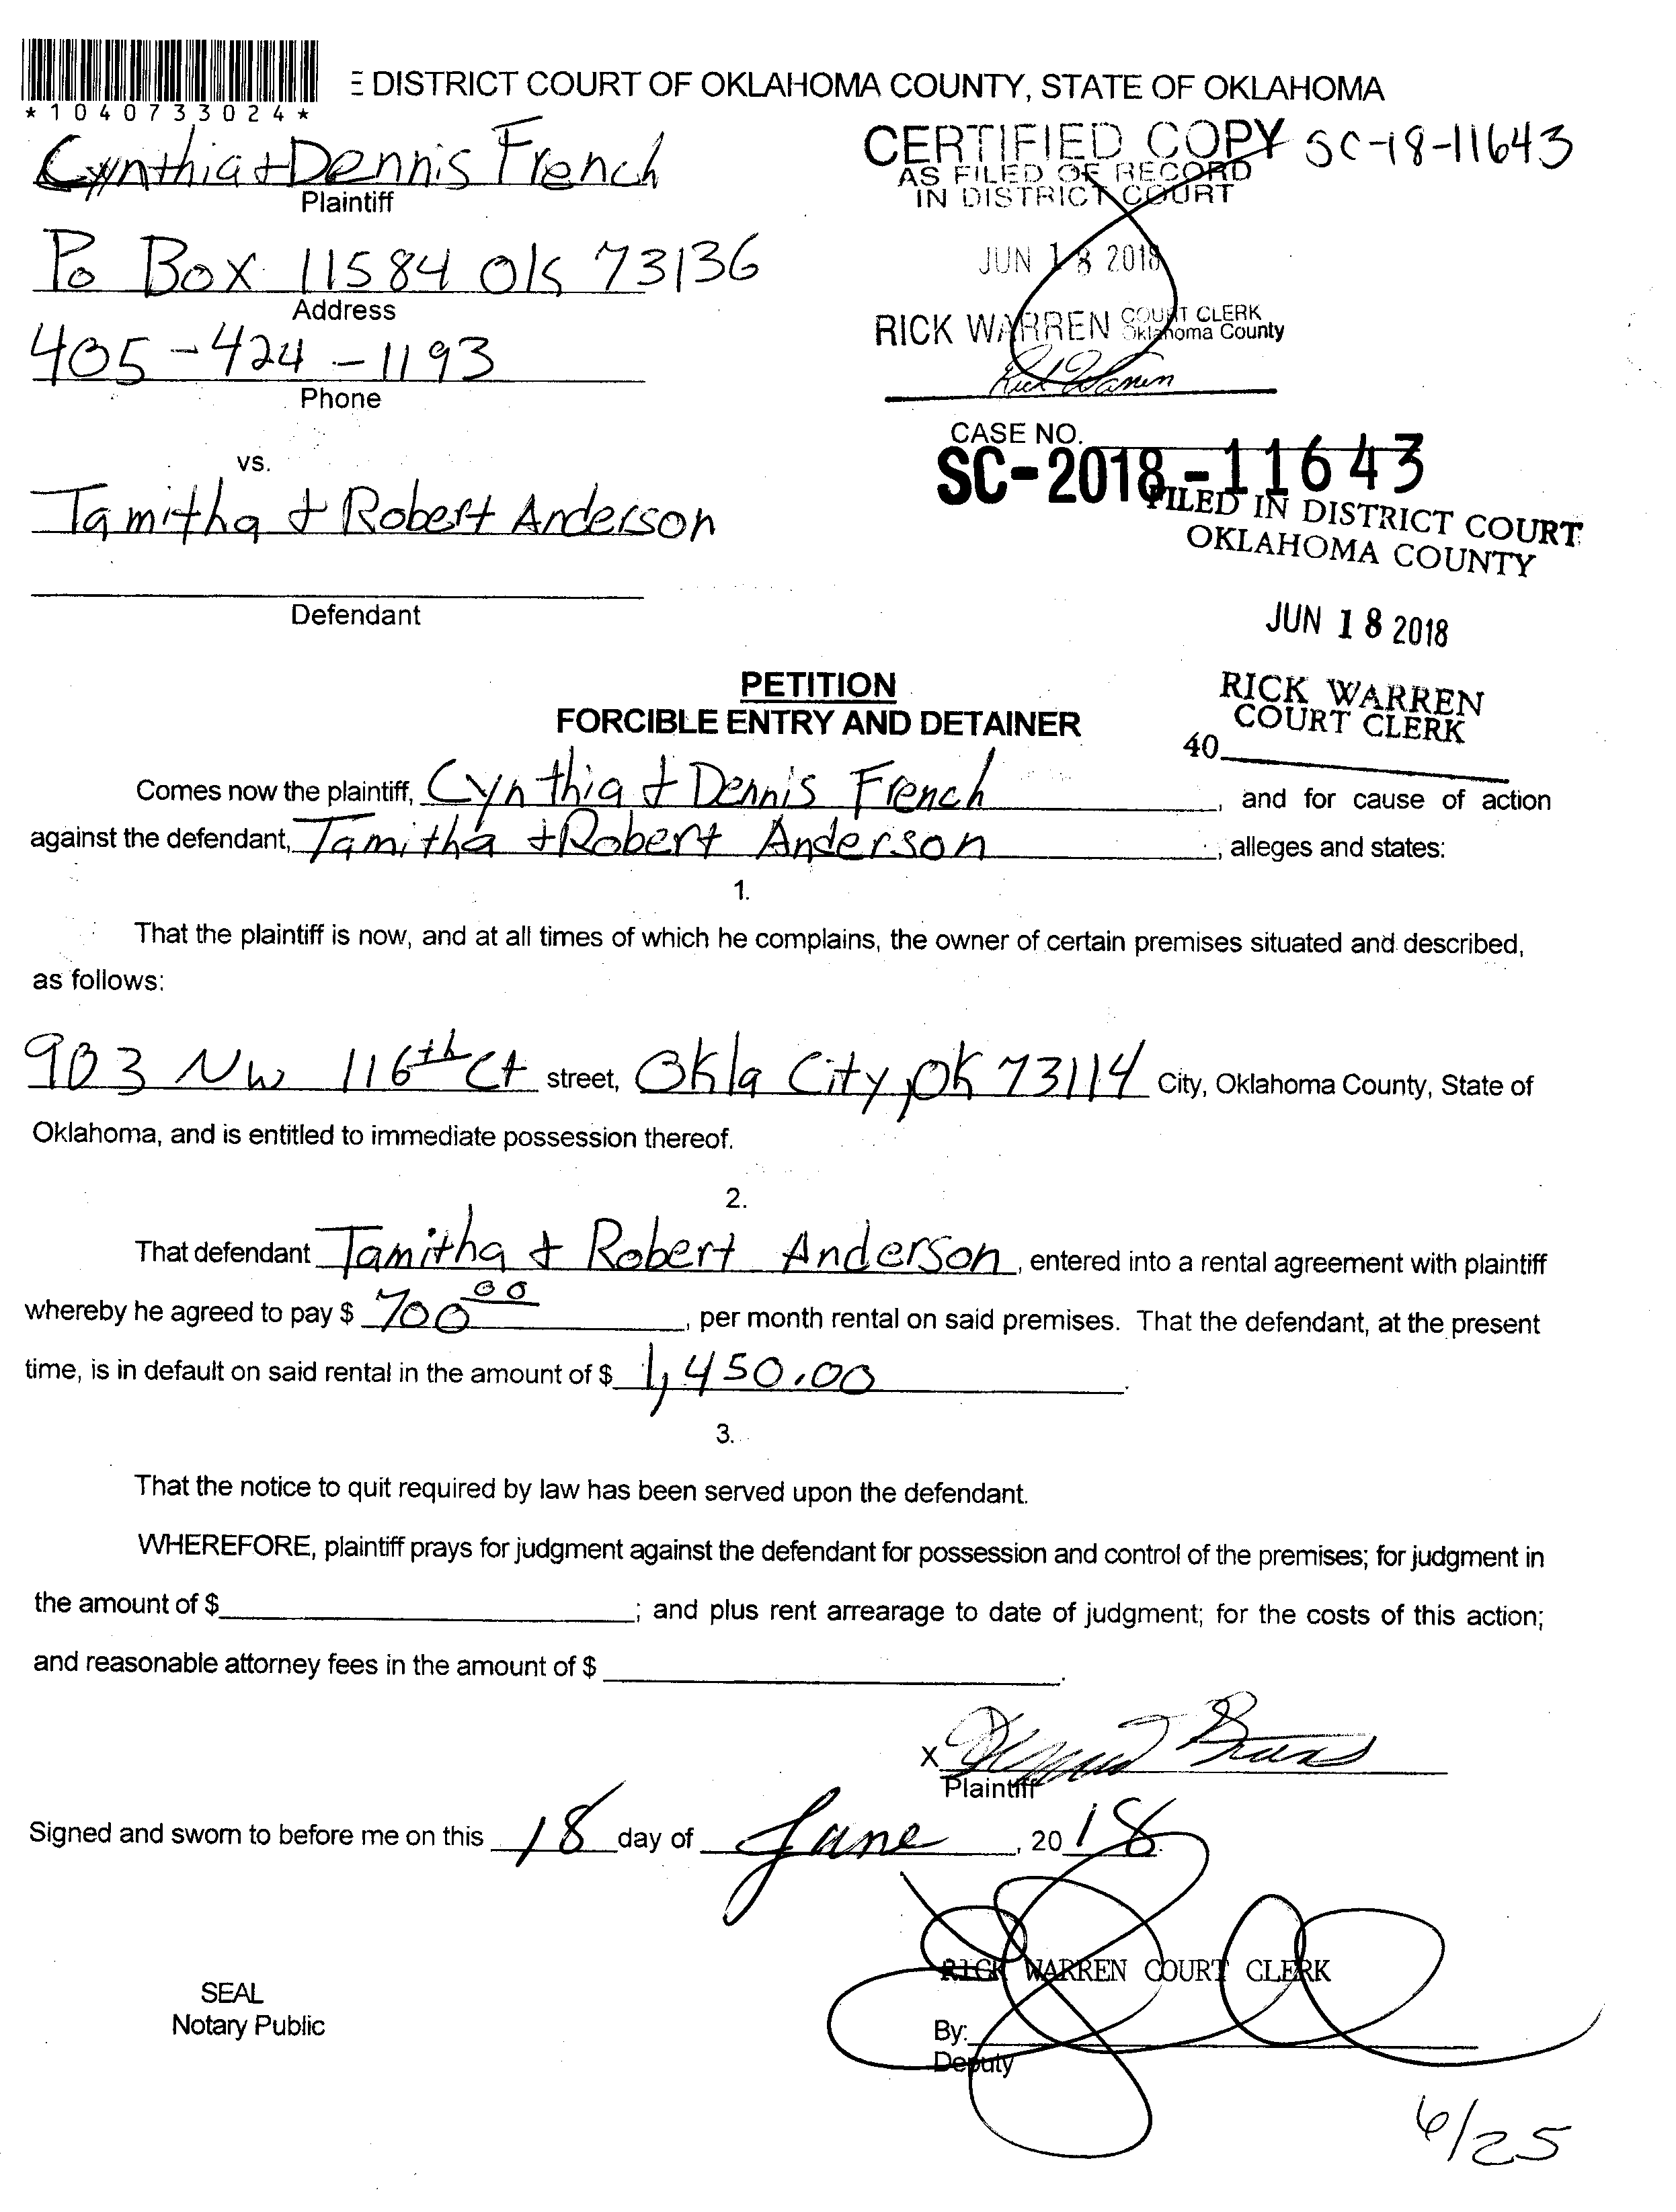 *1040733024*
E DISTRICT COURT OF OKLAHOMA COUNTY, STATE OF OKLAHOMA
Cynthia + Dennis French
Plaintiff
CERTIFIED COPY SC-18-11643
AS FILED OF RECORD
IN DISTRICT COURT
PO BOX 11584 Ok 73136
Address
JUN 18 2018
405-424-1193
Phone
RICK WARREN COURT CLERK
Oklahoma County
Rick Warren
vs.
CASE NO.
SC-2018-11643
Tamitha + Robert Anderson
Defendant
FILED IN DISTRICT COURT
OKLAHOMA COUNTY
JUN 18 2018
RICK WARREN
COURT CLERK
40
PETITION
FORCIBLE ENTRY AND DETAINER
Comes now the plaintiff, Cynthia + Dennis French, and for cause of action
against the defendant, Tamitha + Robert Anderson, alleges and states:
1.
That the plaintiff is now, and at all times of which he complains, the owner of certain premises situated and described,
as follows:
903 NW 116th Ct street, Okla City, OK 73114 City, Oklahoma County, State of
Oklahoma, and is entitled to immediate possession thereof.
2.
That defendant Tamitha + Robert Anderson, entered into a rental agreement with plaintiff
whereby he agreed to pay $ 700 00, per month rental on said premises. That the defendant, at the present
time, is in default on said rental in the amount of $ 1,450.00.
3.
That the notice to quit required by law has been served upon the defendant.
WHEREFORE, plaintiff prays for judgment against the defendant for possession and control of the premises; for judgment in
the amount of $ ; and plus rent arrearage to date of judgment; for the costs of this action;
and reasonable attorney fees in the amount of $ .
X
Plaintiff
Signed and sworn to before me on this 18 day of June, 2018
RICK WARREN COURT CLERK
SEAL
Notary Public
By:
Deputy
6/25